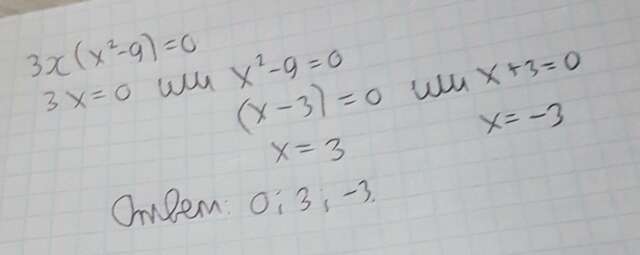 3x(x²-9)=0
3x=0 или x²-9=0
(x-3)=0 или x+3=0
x=3 x=-3
Ответ: 0; 3; -3.